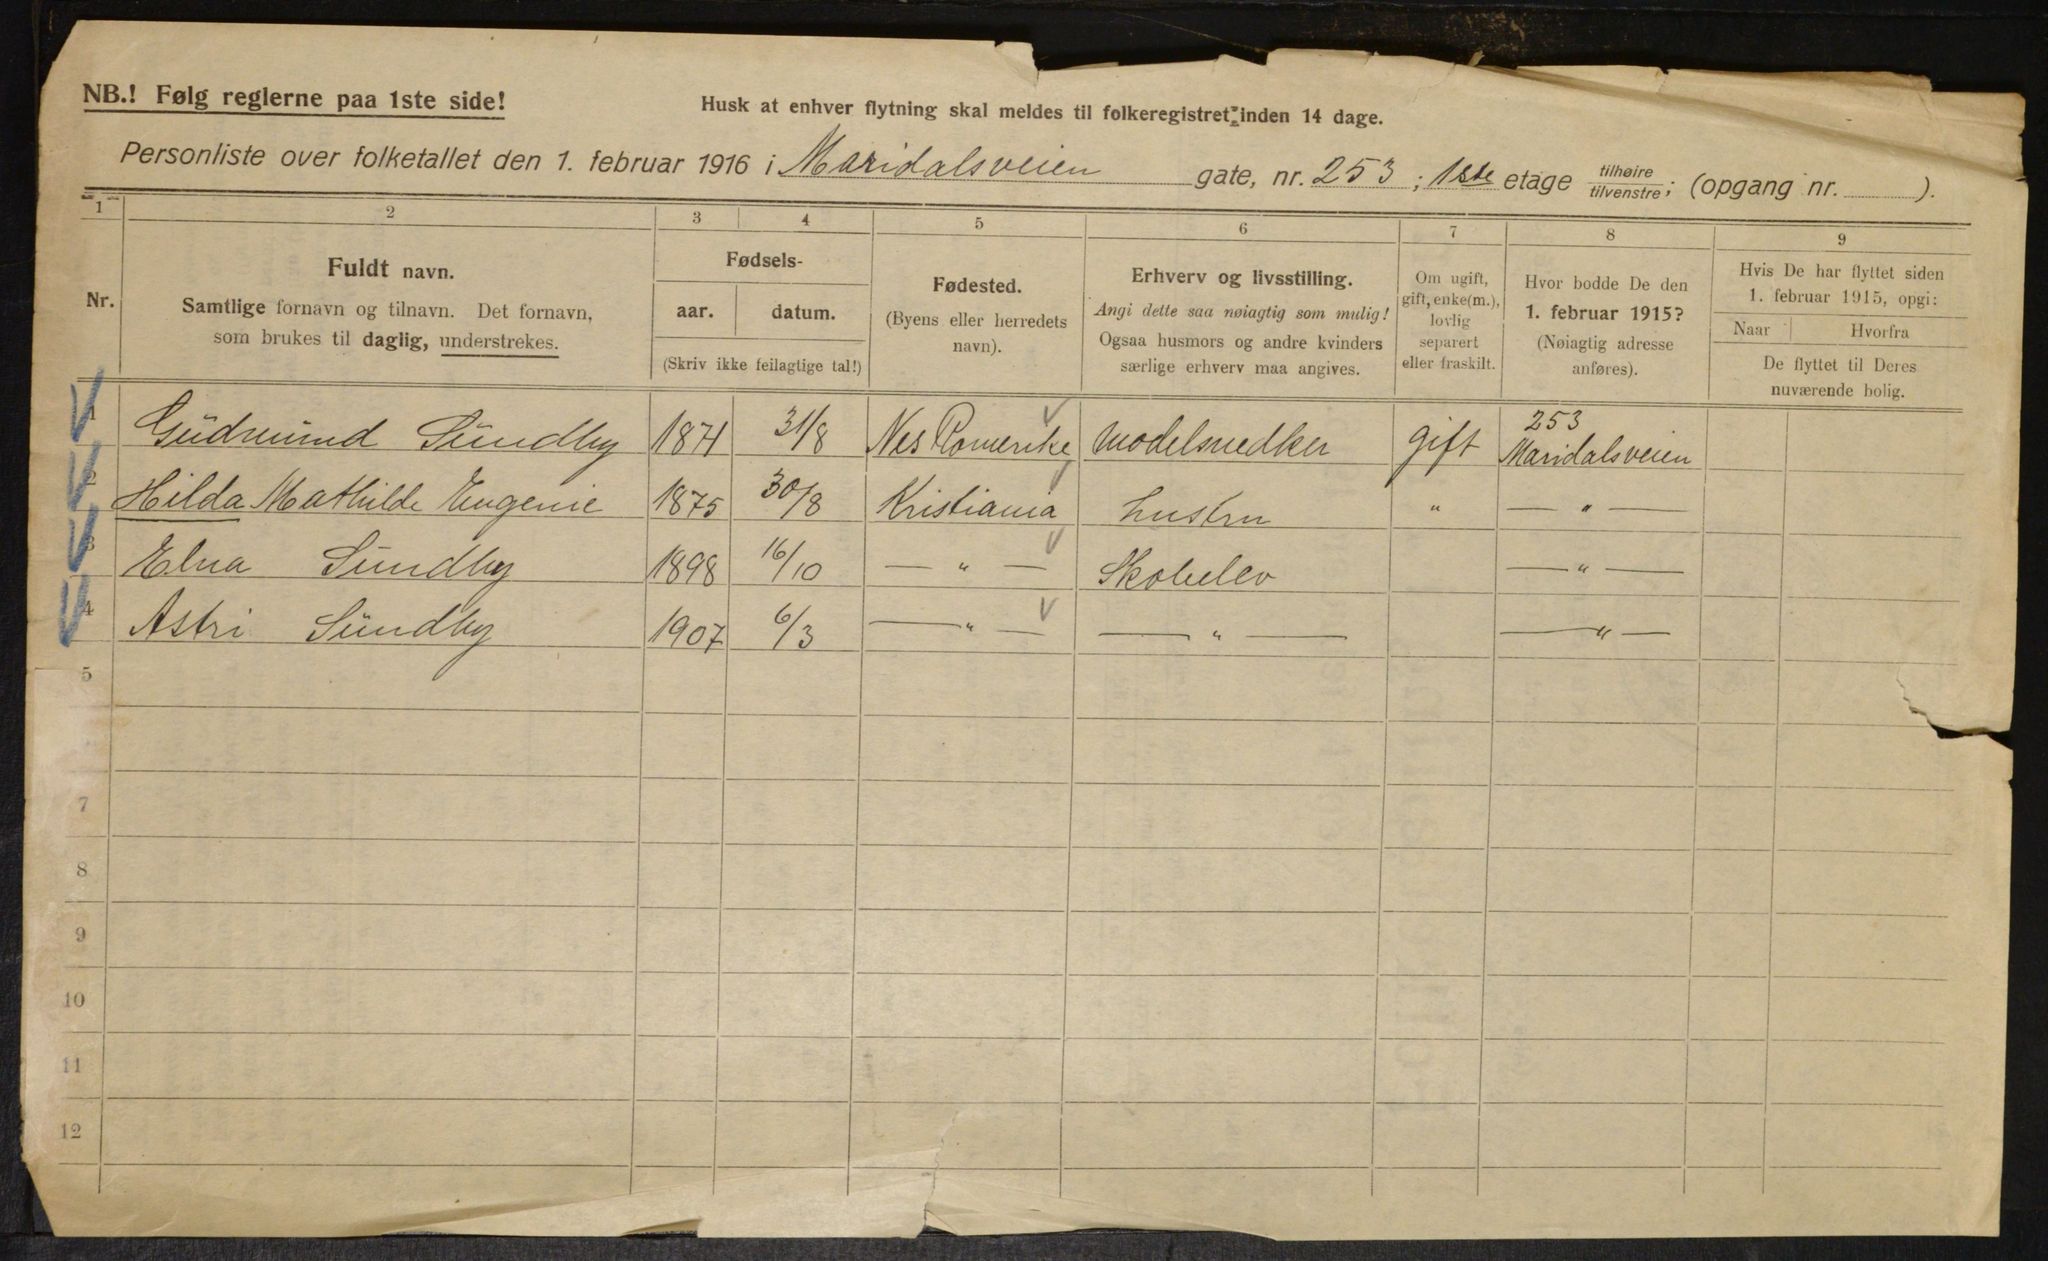 NB.! Følg reglerne paa 1ste side!
Husk at enhver flytning skal meldes til folkeregistret inden 14 dage.
Personliste over folketallet den 1. februar 1916 i Maridalsveien gate, nr. 253; 1ste etage tilhøire/tilvenstre; (opgang nr. ).
1 2 3 4 5 6 7 8 9
Nr.
Fuldt navn.
Samtlige fornavn og tilnavn. Det fornavn,
som brukes til daglig, understrekes.
Fødsels-
aar. datum.
(Skriv ikke feilagtige tal!)
Fødested.
(Byens eller herredets
navn).
Erhverv og livsstilling.
Angi dette saa nøiagtig som mulig!
Ogsaa husmors og andre kvinders
særlige erhverv maa angives.
Om ugift,
gift, enke(m.),
lovlig
separert
eller fraskilt.
Hvor bodde De den
1. februar 1915?
(Nøiagtig adresse
anføres).
Hvis De har flyttet siden
1. februar 1915, opgi:
Naar Hvorfra
De flyttet til Deres
nuværende bolig.
1 Gudmund Sundby 1871 31/8 Nes Romerike modelsnedker gift 253 Maridalsveien
2 Hilda Mathilde Eugenie 1875 30/8 Kristiania hustru " — " —
3 Elna Sundby 1898 16/10 — " — Skoleelev — " —
4 Astri Sundby 1907 6/3 — " — — " — — " —
5
7
8
9
10
11
12